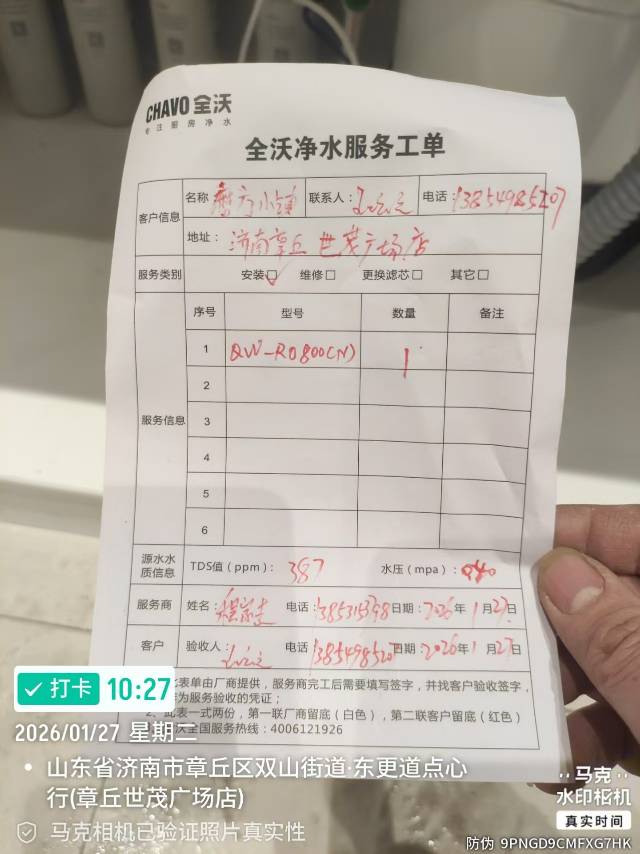 CHAVO 全沃
专注厨房净水
全沃净水服务工单
客户信息
名称
小镇
联系人:
电话: 13854985207
地址: 济南章丘 世茂广场店
服务类别 安装☑ 维修□ 更换滤芯□ 其它□
服务信息
序号 型号 数量 备注
1 QW-RO800(N) 1
2
3
4
5
6
源水水质信息 TDS值(ppm): 387 水压(mpa):
服务商 姓名: 电话: 日期: 2026年1月27日
客户 验收人: 电话 1385498520 日期: 2026年1月27日
此表单由厂商提供,服务商完工后需要填写签字,并找客户验收签字,
为服务验收的凭证;
2、此表一式两份,第一联厂商留底(白色),第二联客户留底(红色)
沃全国服务热线:4006121926
打卡 10:27
2026/01/27 星期二
山东省济南市章丘区双山街道·东更道点心
行(章丘世茂广场店)
马克相机已验证照片真实性
马克
水印相机
真实时间
防伪 9PNGD9CMFXG7HK